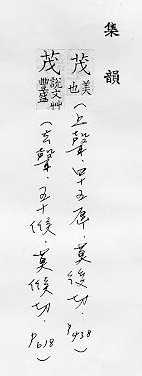 集韻
茂 美也(上聲．四十五厚．莫後切．P438)
茂 說文艸豐盛(去聲．五十候．莫候切．P618)